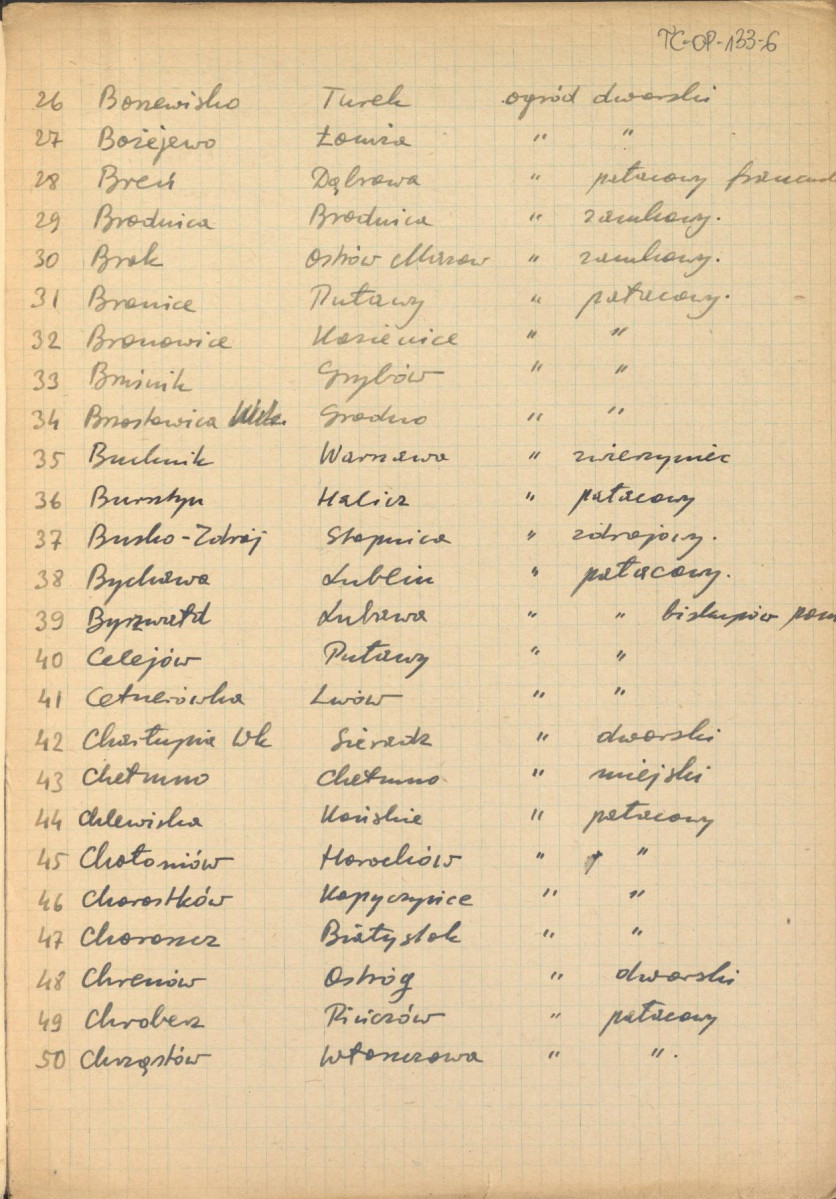 TC-OP-133-6
26 Borzewisko Turek ogród dworski
27 Bożejewo Łomża " "
28 Breń Dąbrowa " pałacowy
29 Brodnica Brodnica " zamkowy.
30 Brok Ostrów Mazow " zamkowy.
31 Bronice Puławy " pałacowy.
32 Bronowice Kozienice " "
33 Bruśnik Grybów " "
34 Brzostowica Wielk. Grodno " "
35 Buchnik Warszawa " zwierzyniec
36 Bursztyn Halicz " pałacowy
37 Busko-Zdrój Stopnica " zdrojowy.
38 Bychawa Lublin " pałacowy.
39 Byrzwałd Lubawa " " biskupów pom
40 Celejów Puławy " "
41 Cetnerówka Lwów " "
42 Charłupia Wk Sieradz " dworski
43 Chełmno Chełmno " miejski
44 Chlewiska Końskie " pałacowy
45 Chołoniów Horochów " "
46 Chorostków Kopyczyńce " "
47 Choroszcz Białystok " "
48 Chreniów Ostróg " dworski
49 Chroberz Pińczów " pałacowy
50 Chrząstów Włoszczowa " ".